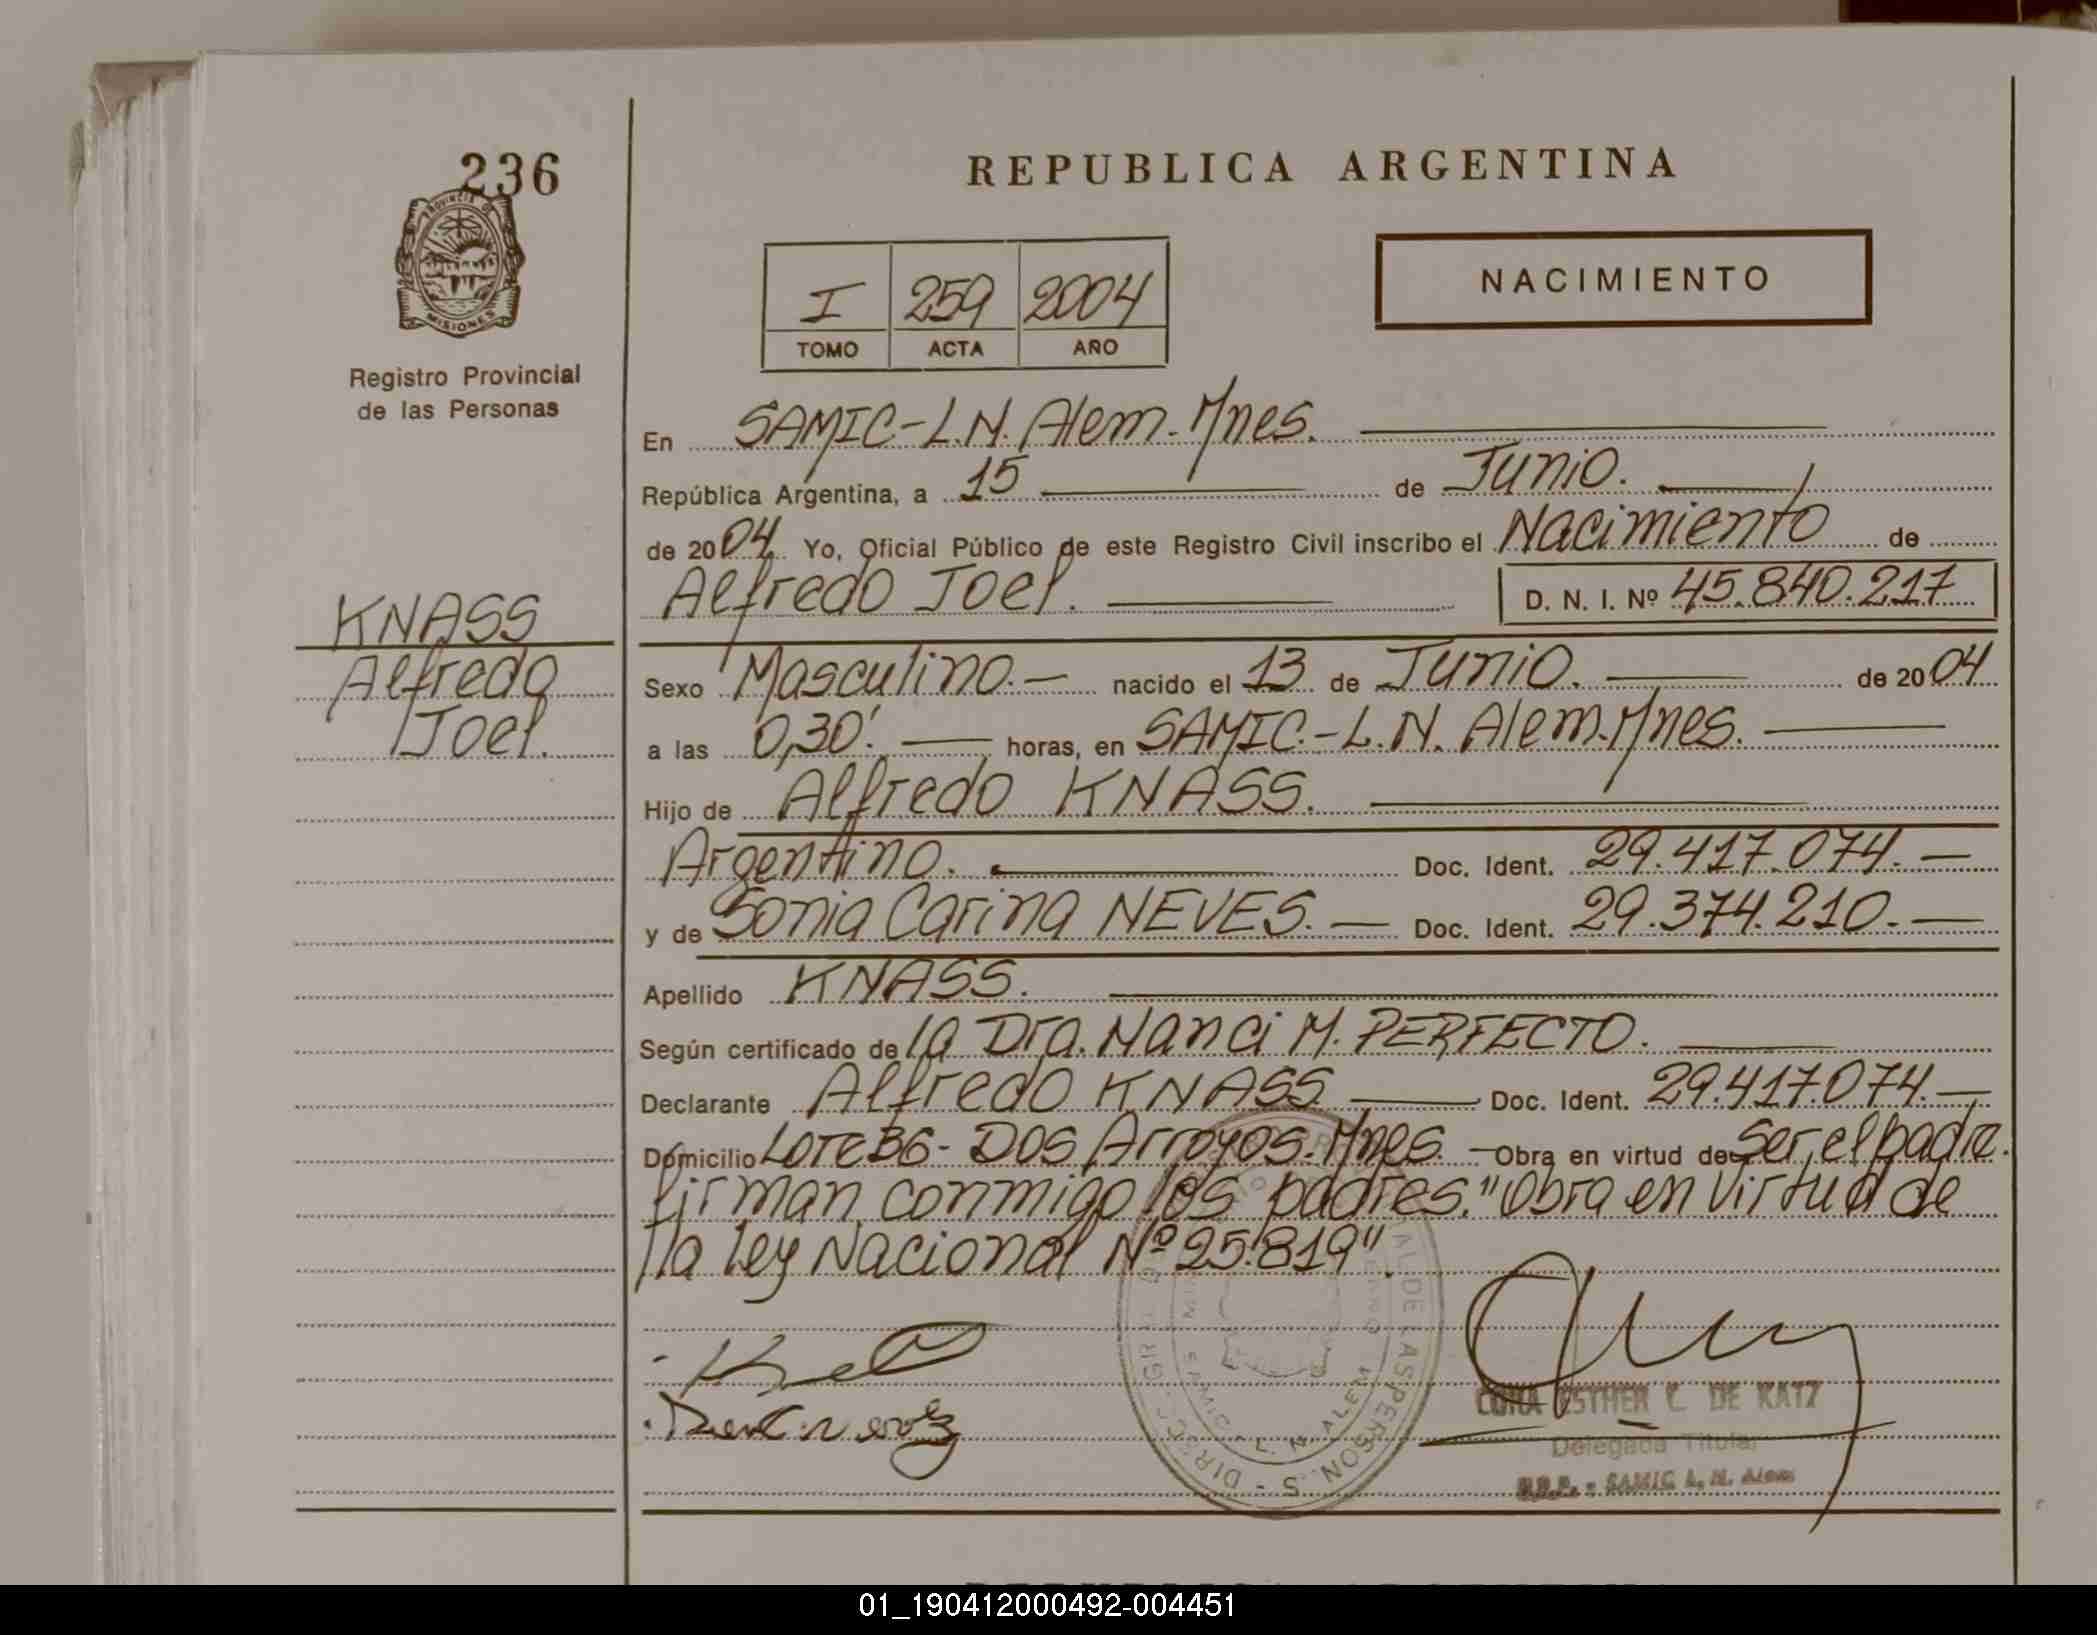 236
PROVINCIA DE
MISIONES
Registro Provincial
de las Personas
KNASS
Alfredo
Joel.
REPUBLICA ARGENTINA
NACIMIENTO
I 259 2004
TOMO ACTA AÑO
En SAMIC-L.N. Alem. Mnes.
República Argentina, a 15 de Junio.
de 2004 Yo, Oficial Público de este Registro Civil inscribo el Nacimiento de
Alfredo Joel. D. N. I. Nº 45.840.217
Sexo Masculino.- nacido el 13 de Junio. de 2004
a las 0,30'. horas, en SAMIC.-L.N. Alem. Mnes.
Hijo de Alfredo KNASS.
Argentino. Doc. Ident. 29.417.074.-
y de Sonia Carina NEVES.- Doc. Ident. 29.374.210.-
Apellido KNASS.
Según certificado de la Dra. Nanci M. PERFECTO.
Declarante Alfredo KNASS Doc. Ident. 29.417.074.-
Domicilio Lote 36- DOS Arroyos. Mnes. - Obra en virtud de Ser el padre.
firman conmigo los padres. "Obra en Virtud de
la Ley Nacional Nº 25.819".
L. N. ALEM
ESTHER C. DE KATZ
Delegada Titular
R.P.P. - SAMIC L. N. Alem
01_190412000492-004451